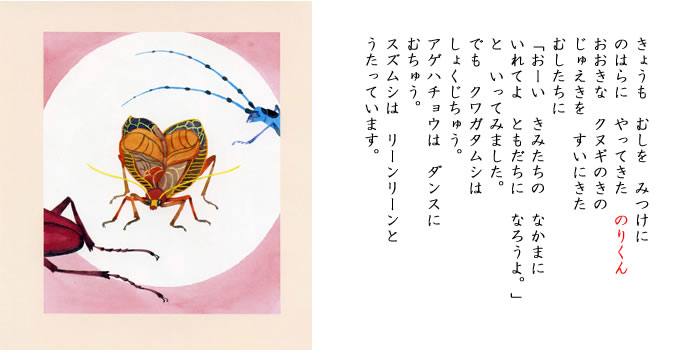 きょうも　むしを　みつけに
のはらに　やってきた　のりくん
おおきな　クヌギのきの
じゅえきを　すいにきた
むしたちに
「おーい　きみたちの　なかまに
いれてよ　ともだちに　なろうよ。」
と　いってみました。
でも　クワガタムシは
しょくじちゅう。
アゲハチョウは　ダンスに
むちゅう。
スズムシは　リーンリーンと
うたっています。